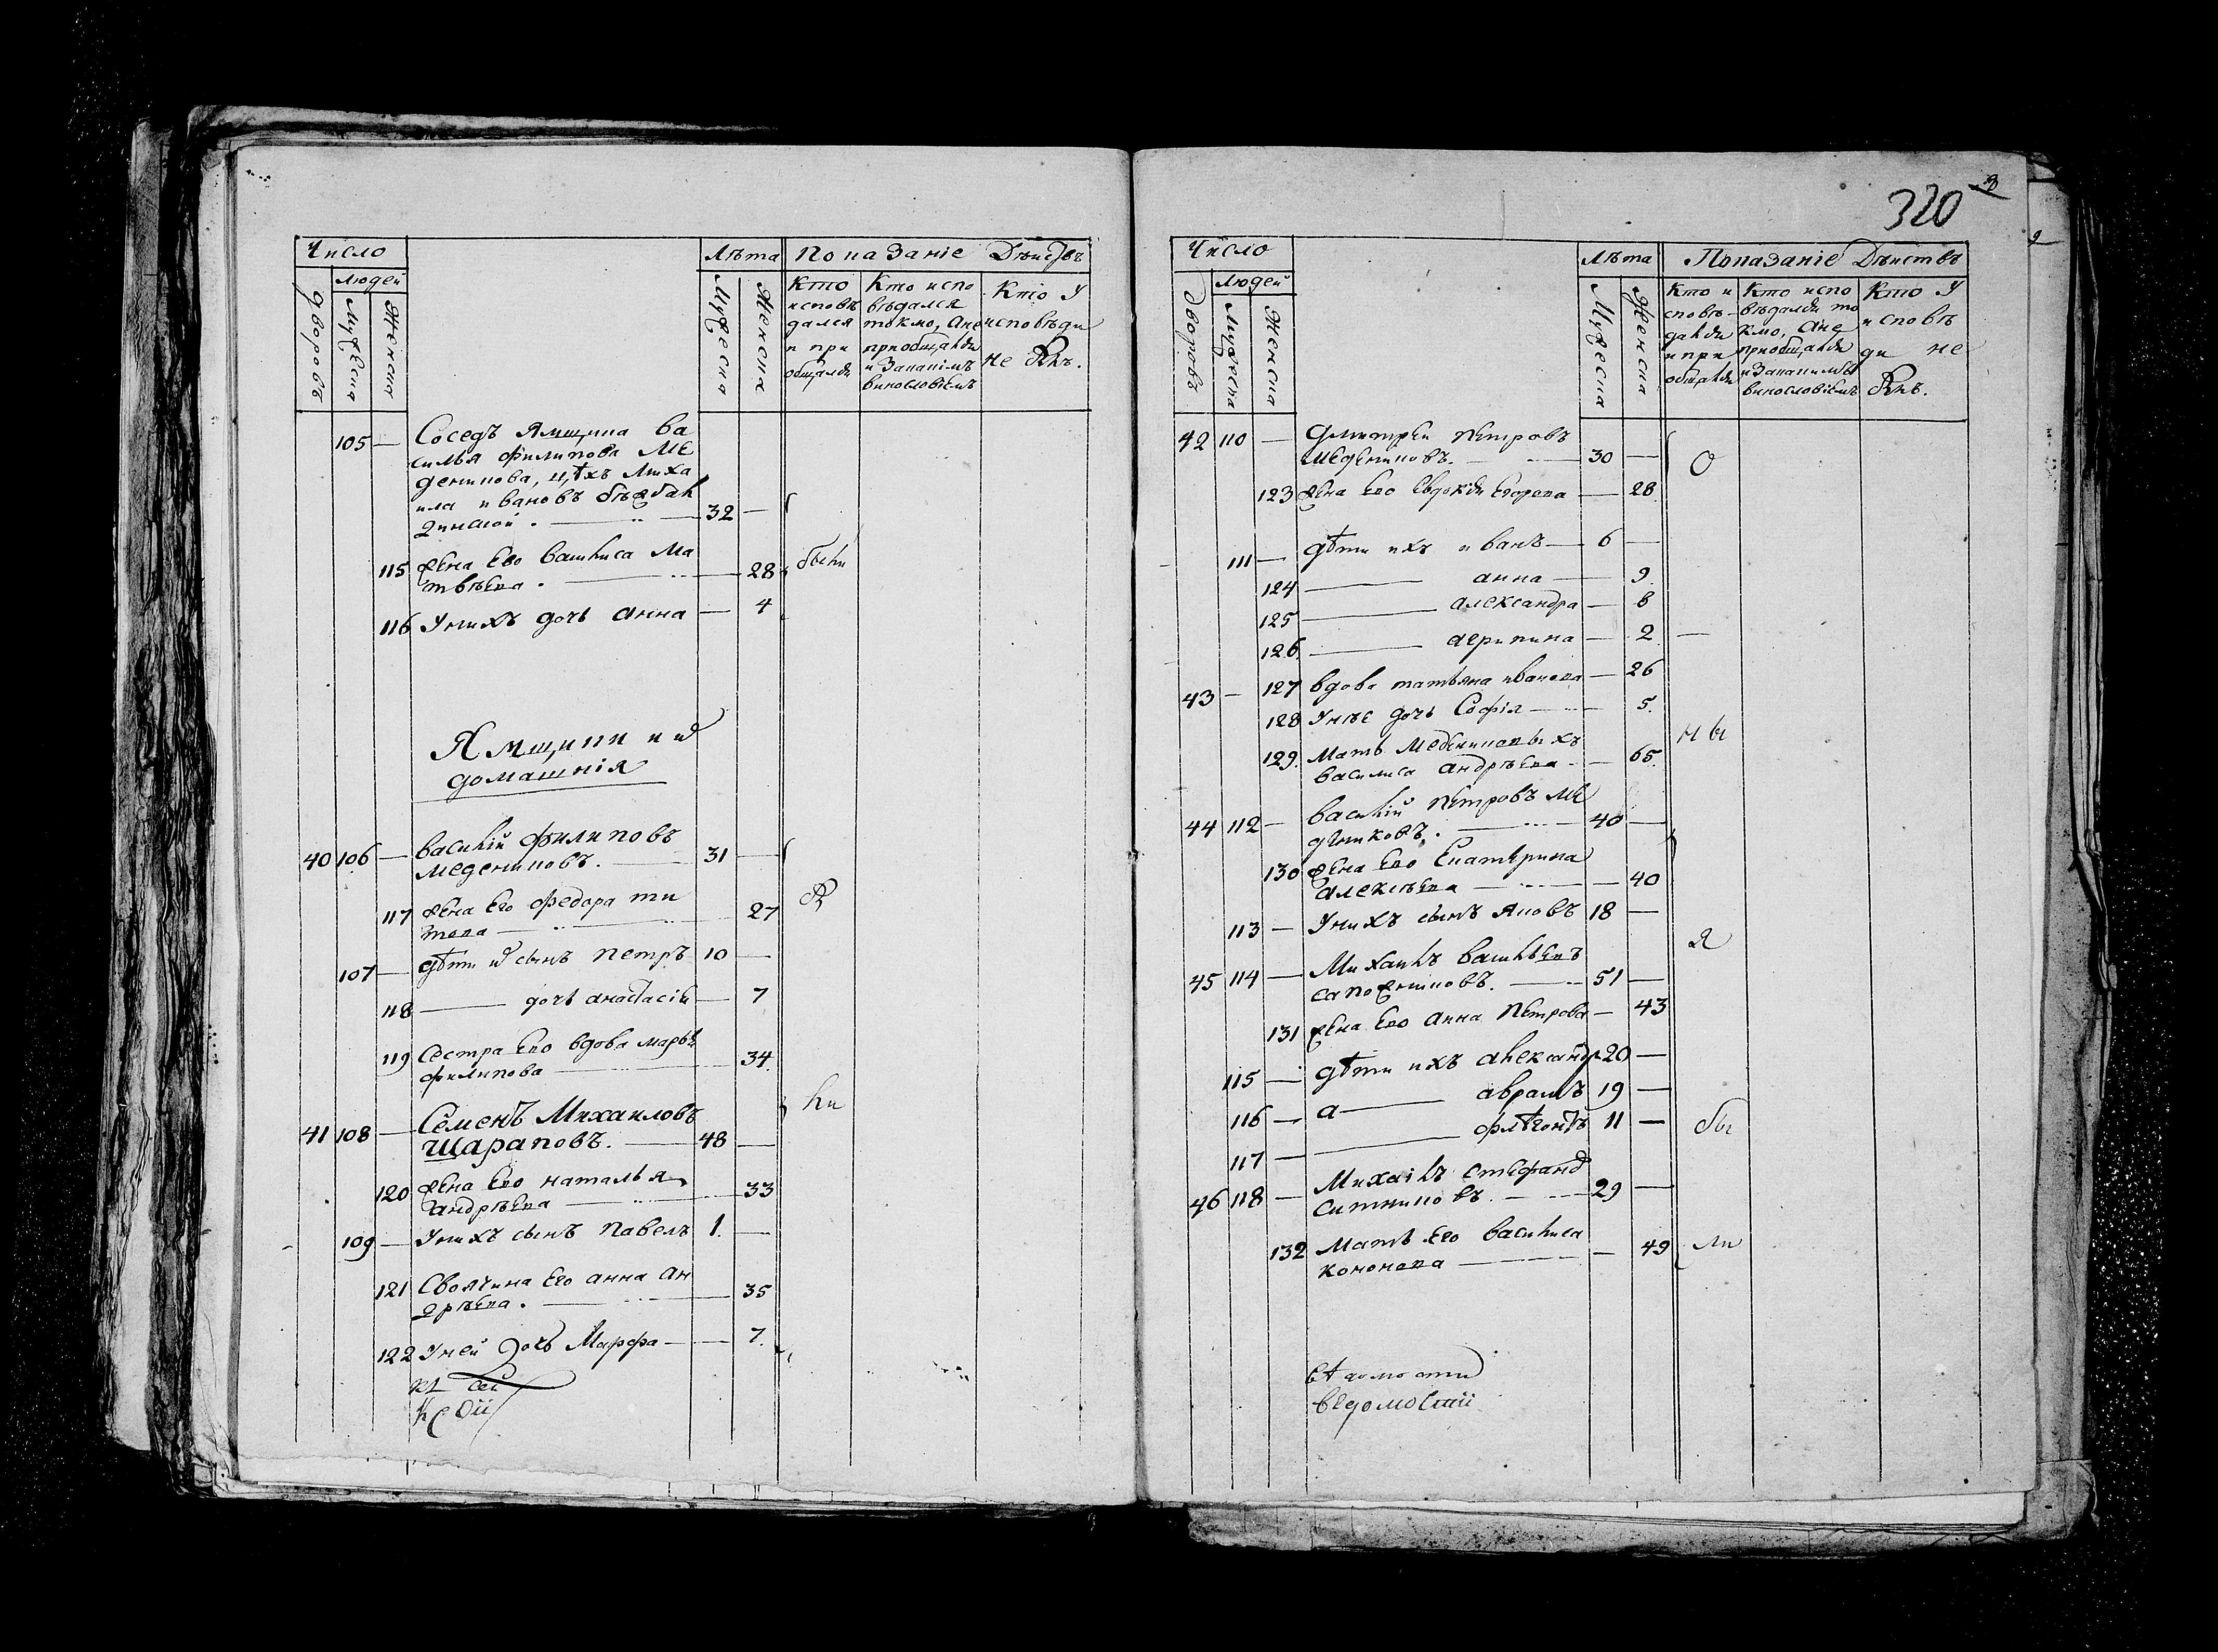 Число
Людей
Дворовъ
Мужеска
Женска
Лѣта
Мужеска
Женска
Показаніе Дѣиствъ
Кто
исповѣ
дался
и при
общался
Кто испо
вѣдался
токмо, а не
приобщался
и за какимъ
винословіемъ
Кто у
исповѣди
не былъ.
105 — Соседъ Ямщика Ва
силья Филипова Ме
деникова, Михаи
ила Ивановъ
32 —
115 жена Ево Василиса Ма
твѣева . — — 28 были
116 У нихъ дочь Анна — 4
Ямщики и ихъ
домашнія
40 106 — Василій Филиповъ
Медениковъ. — 31 —
117 жена Его Федора Ти
това — — 27
107 — дѣти ихъ сынъ Петръ 10 —
118 — дочь Анастасія — 7
119 Сестра Ево вдова Марья
Филипова — 34.
41 108 — Семенъ Михаиловъ
Шараповъ. — 48 —
ли
120 жена Ево Наталья
Андрѣева — 33
109 — У нихъ сынъ Павелъ 1. —
121 Своячина Его Анна Ан
дрѣева . — 35
122 У ней дочь Марфа — 7.
320
Число
Людей
Дворовъ
Мужеска
Женска
Лѣта
Мужеска
Женска
Показаніе Дѣиствъ
Кто и
сповѣ-
дался
и при
общался
Кто испо
вѣдался то
кмо, а не
приобщался
и за какимъ
винословіемъ
Кто у
исповѣ
ди не
былъ.
42 110 — Дмитреи Петровъ
Медениковъ. — 30 —
О
123 жена Ево Евдокія Егорова — 28.
111 — дѣти ихъ Иванъ — 6 —
124 — Анна — 9.
125 — Александра — 8
126. — Агрипина — 2
43 — 127 вдова Татьяна Иванова — 26
128 У нѣе дочь Софія — 5.
ны
129. Мать Медениковыхъ
Василиса Андрѣева — — 65.
44 112 — Василій Петровъ Ме
дениковъ . — 40 —
130 жена Ево Екатерина
Алексѣева — — 40
113 — У нихъ сынъ Яковъ 18 —
я
45 114 — Михаилъ Васильевъ
Сапожниковъ. — 51 —
131 жена Ево Анна Петрова — 43
115 — дѣти ихъ Александръ 20 —
116 — а — Аврамъ 19 —
117 — — Флѣгонтъ 11 —
бы
46 118 — Михаилъ Стефановъ
Ситниковъ. — 29 —
132 Мать Его Василиса
Кононова — — 49
ли
ведомости